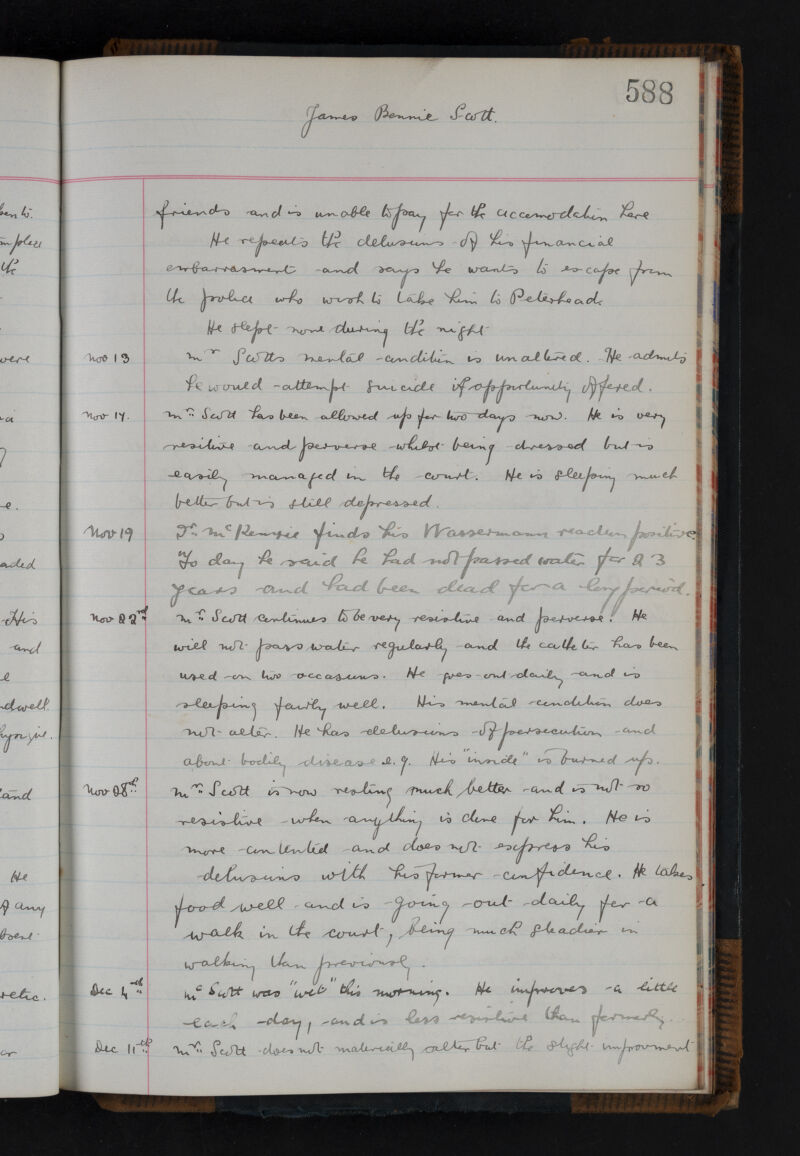 588
James Bennie Scott.
friends and is unable to pay for the accomodation here
He repeats the delusions of his financial
embarrasment and says he wants to escape from
the police who wish to take him to Peterhead.
He slept none during the night
Nov 13 Mr Scotts mental condition is unaltered. He admits
he would attempt suicide if opportunity offered.
Nov 14. Mr Scott has been allowed up for two days now. He is very
resitive and perverse whilst being dressed but is
easily managed in the court. He is sleeping much
better but is still depressed.
Nov 19 Dr McKenzie finds his Wassermann reaction positive.
To day he said he had not passed water for 23
years and had been dead for a long period.
Nov 22nd Mr Scott continues to be very resistive and perverse. He
will not pass water regularly and the catheter has been
used on two occasions. He goes out daily and is
sleeping fairly well. His mental condition does
not alter. He has delusions of persecution and
about bodily disease e.g. His "inside" is burned up.
Nov 28th Mr Scott is now resting much better and is not so
resistive when anything is done for him. He is
more contented and does not express his
delusions with his former confidence. He takes
food well and is going out daily for a
walk in the court, being much steadier in
walking than previously.
Dec 4th Mr Scott was "wet" this morning. He improves a little
each day, and is less resistive than formerly.
Dec 11th Mr Scott does not materially alter but the slight improvment
were
e.
His
and
and
He
of any